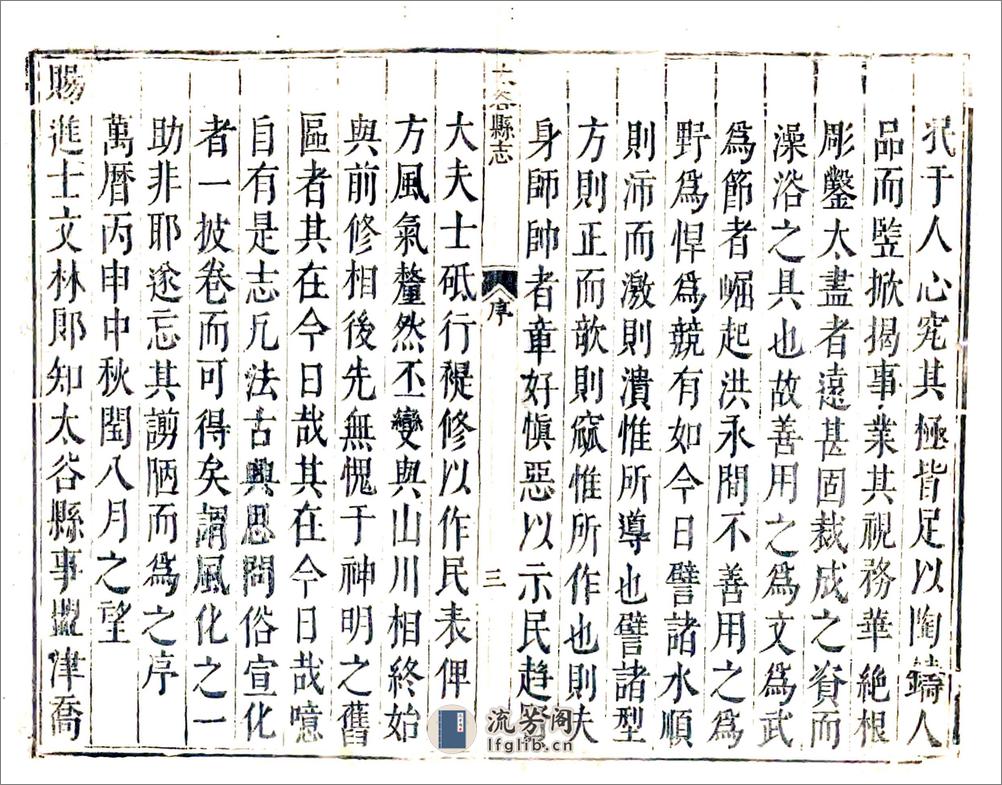 泯于人心究其極皆足以陶鑄人
品而豎掀揭事業其視務華絕根
彫鑿太盡者遠甚固裁成之資而
澡浴之具也故善用之爲文爲武
爲節者崛起洪永間不善用之爲
野爲悍爲競有如今日譬諸水順
則沛而激則潰惟所導也譬諸型
方則正而欹則窳惟所作也則夫
身師帥者章好愼惡以示民趨
太谷縣志
序
三
大夫士砥行禔修以作民表俾
方風氣釐然丕變與山川相終始
與前修相後先無愧于神明之舊
區者其在今日哉其在今日哉噫
自有是志凡法古興思問俗宣化
者一披卷而可得矣謂風化之一
助非耶遂忘其謭陋而爲之序
萬曆丙申中秋閏八月之望
賜進士文林郎知太谷縣事盟津喬
流芳阁
lfglib.cn